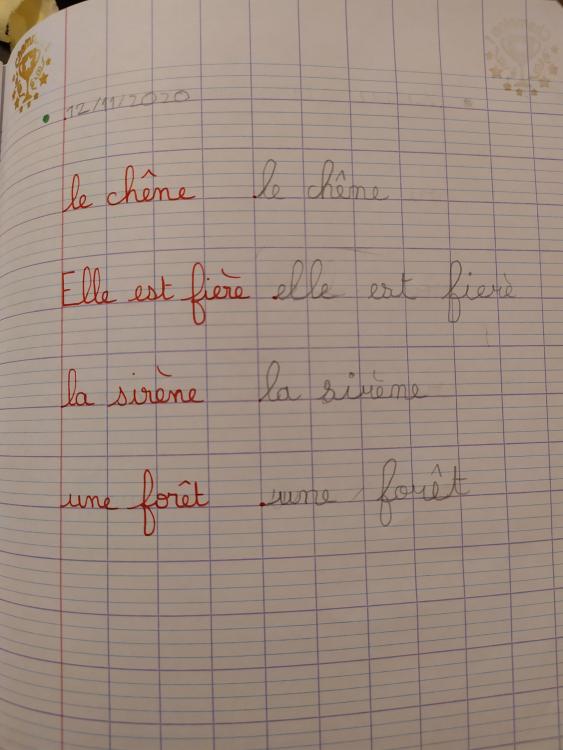 12/11/2020
le chêne le chême
Elle est fierè elle est fierè
la sirène la sirème
une forêt ume forêt